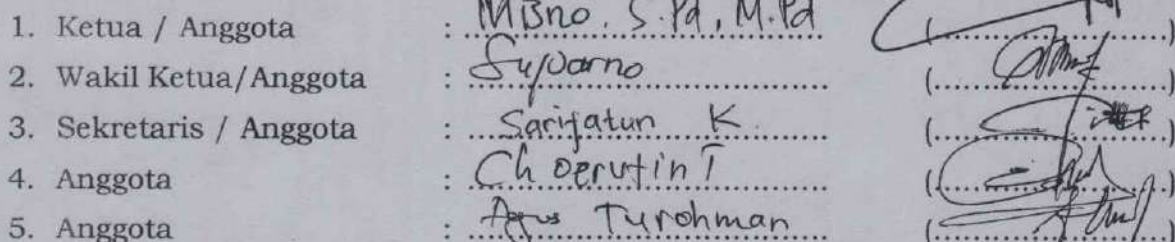 1. Ketua / Anggota : Misno, S.Pd, M.Pd (..........)
2. Wakil Ketua/Anggota : Sujvarno (..........)
3. Sekretaris / Anggota : Sarifatun K. (..........)
4. Anggota : Choerutin T (..........)
5. Anggota : Agus Turohman (..........)